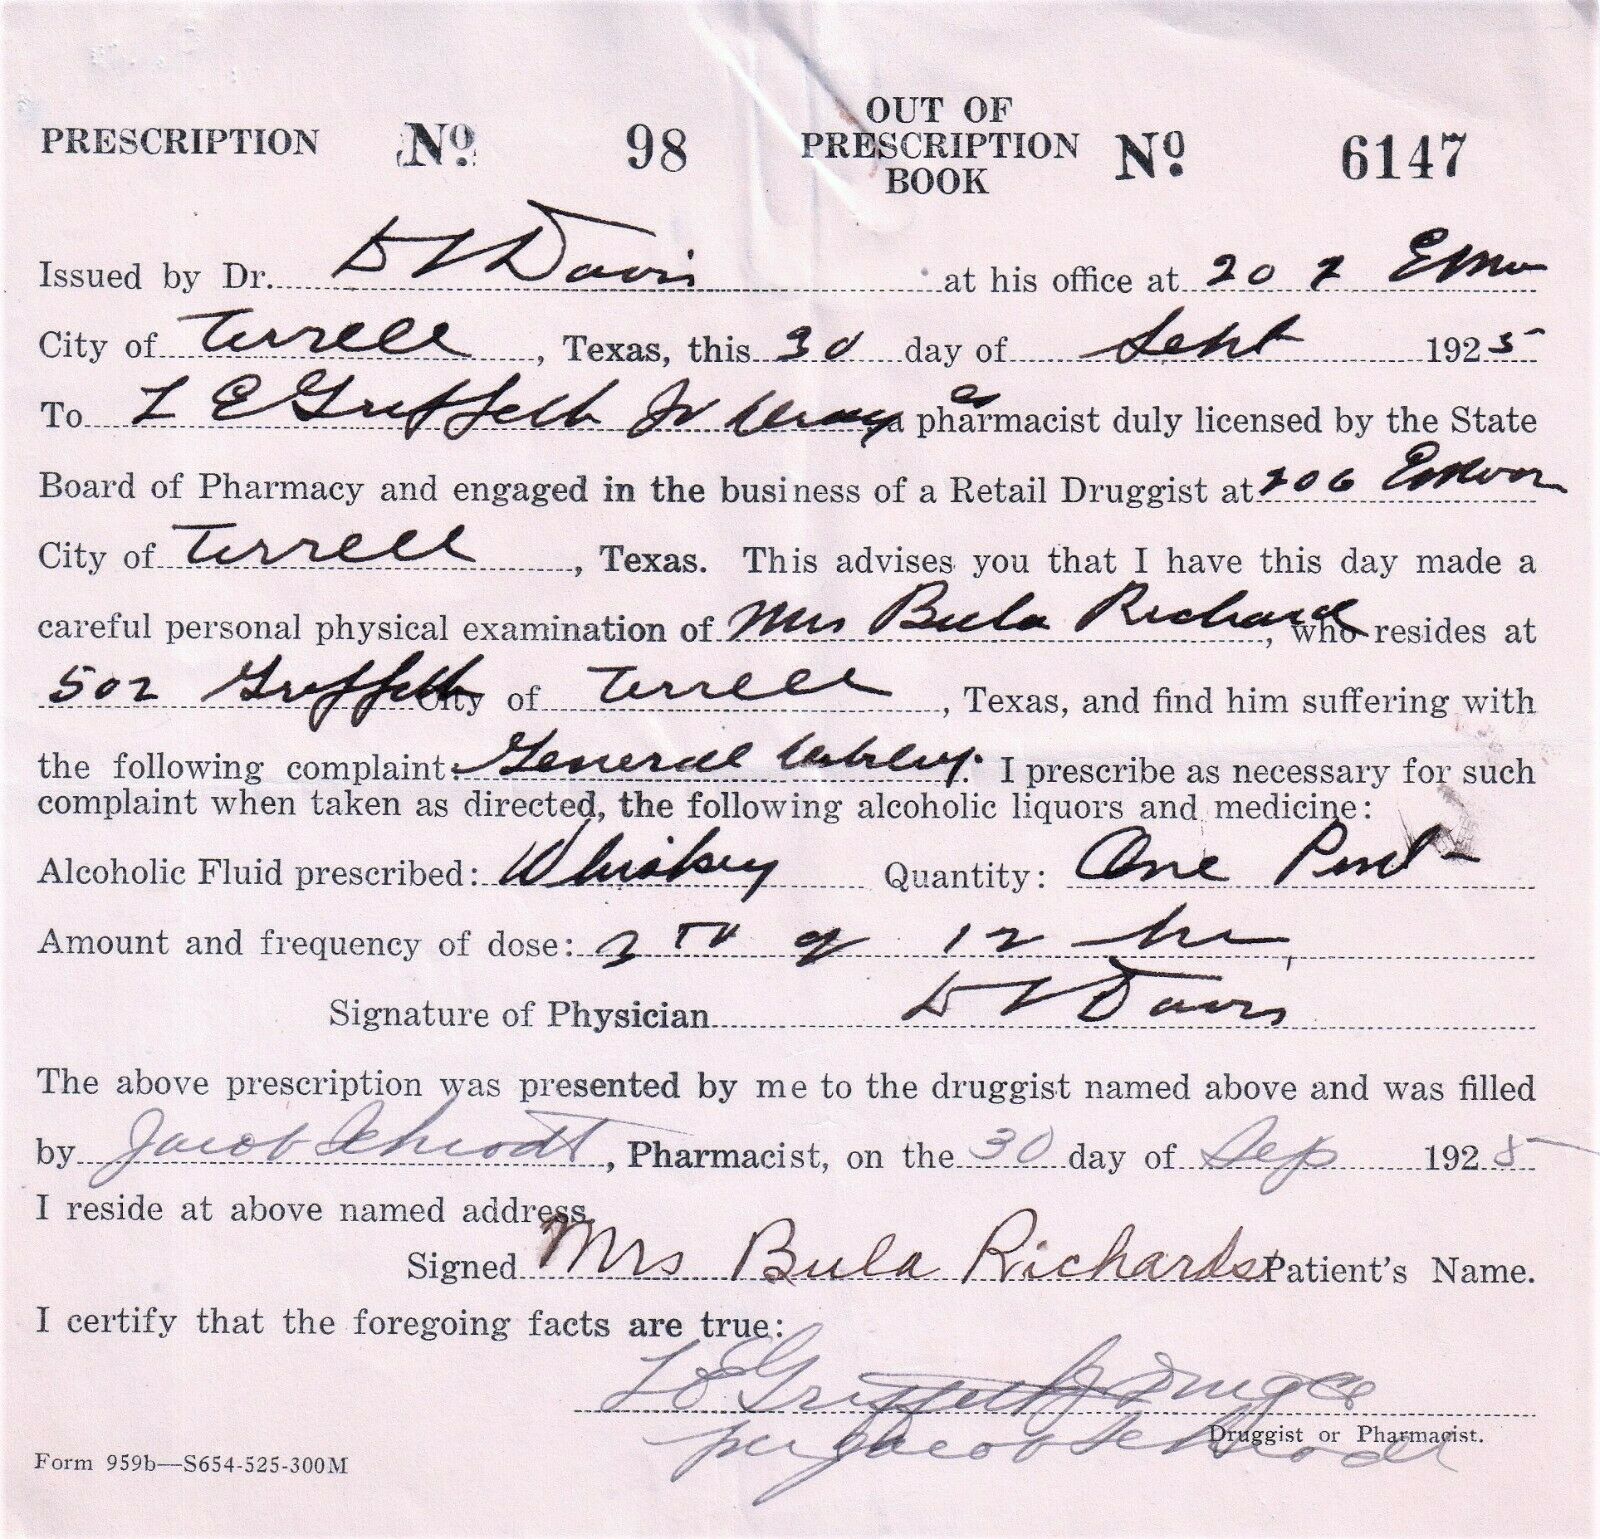 PRESCRIPTION No. 98 OUT OF PRESCRIPTION BOOK No. 6147
Issued by Dr. Davis at his office at 207
City of Terrell, Texas, this 30 day of Sept 1925
To L E Griffeth Jr a pharmacist duly licensed by the State
Board of Pharmacy and engaged in the business of a Retail Druggist at 206
City of Terrell, Texas. This advises you that I have this day made a
careful personal physical examination of Mrs Bula Richard, who resides at
502 Griffeth City of Terrell, Texas, and find him suffering with
the following complaint General I prescribe as necessary for such
complaint when taken as directed, the following alcoholic liquors and medicine:
Alcoholic Fluid prescribed: Whiskey Quantity: One Pint
Amount and frequency of dose:
Signature of Physician Davis
The above prescription was presented by me to the druggist named above and was filled
by Jacob Schrodt, Pharmacist, on the 30 day of Sep 1925
I reside at above named address
Signed Mrs Bula Richards Patient's Name.
I certify that the foregoing facts are true:
L E Griffeth Jr
per Jacob Schrodt
Druggist or Pharmacist.
Form 959b—S654-525-300M